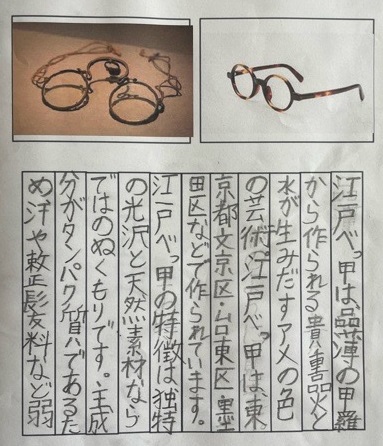 江戸べっ甲は、の甲羅
から作られる貴重品火と
水が生みだすアメの色
の芸術江戸べっ甲は、東
京都文京区・台東区・墨
田区などで作られています。
江戸べっ甲の特徴は独特
の光沢と天然素材なら
ではのぬくもりです。主成
分がタンパク質であるた
め汗や整髪料など弱